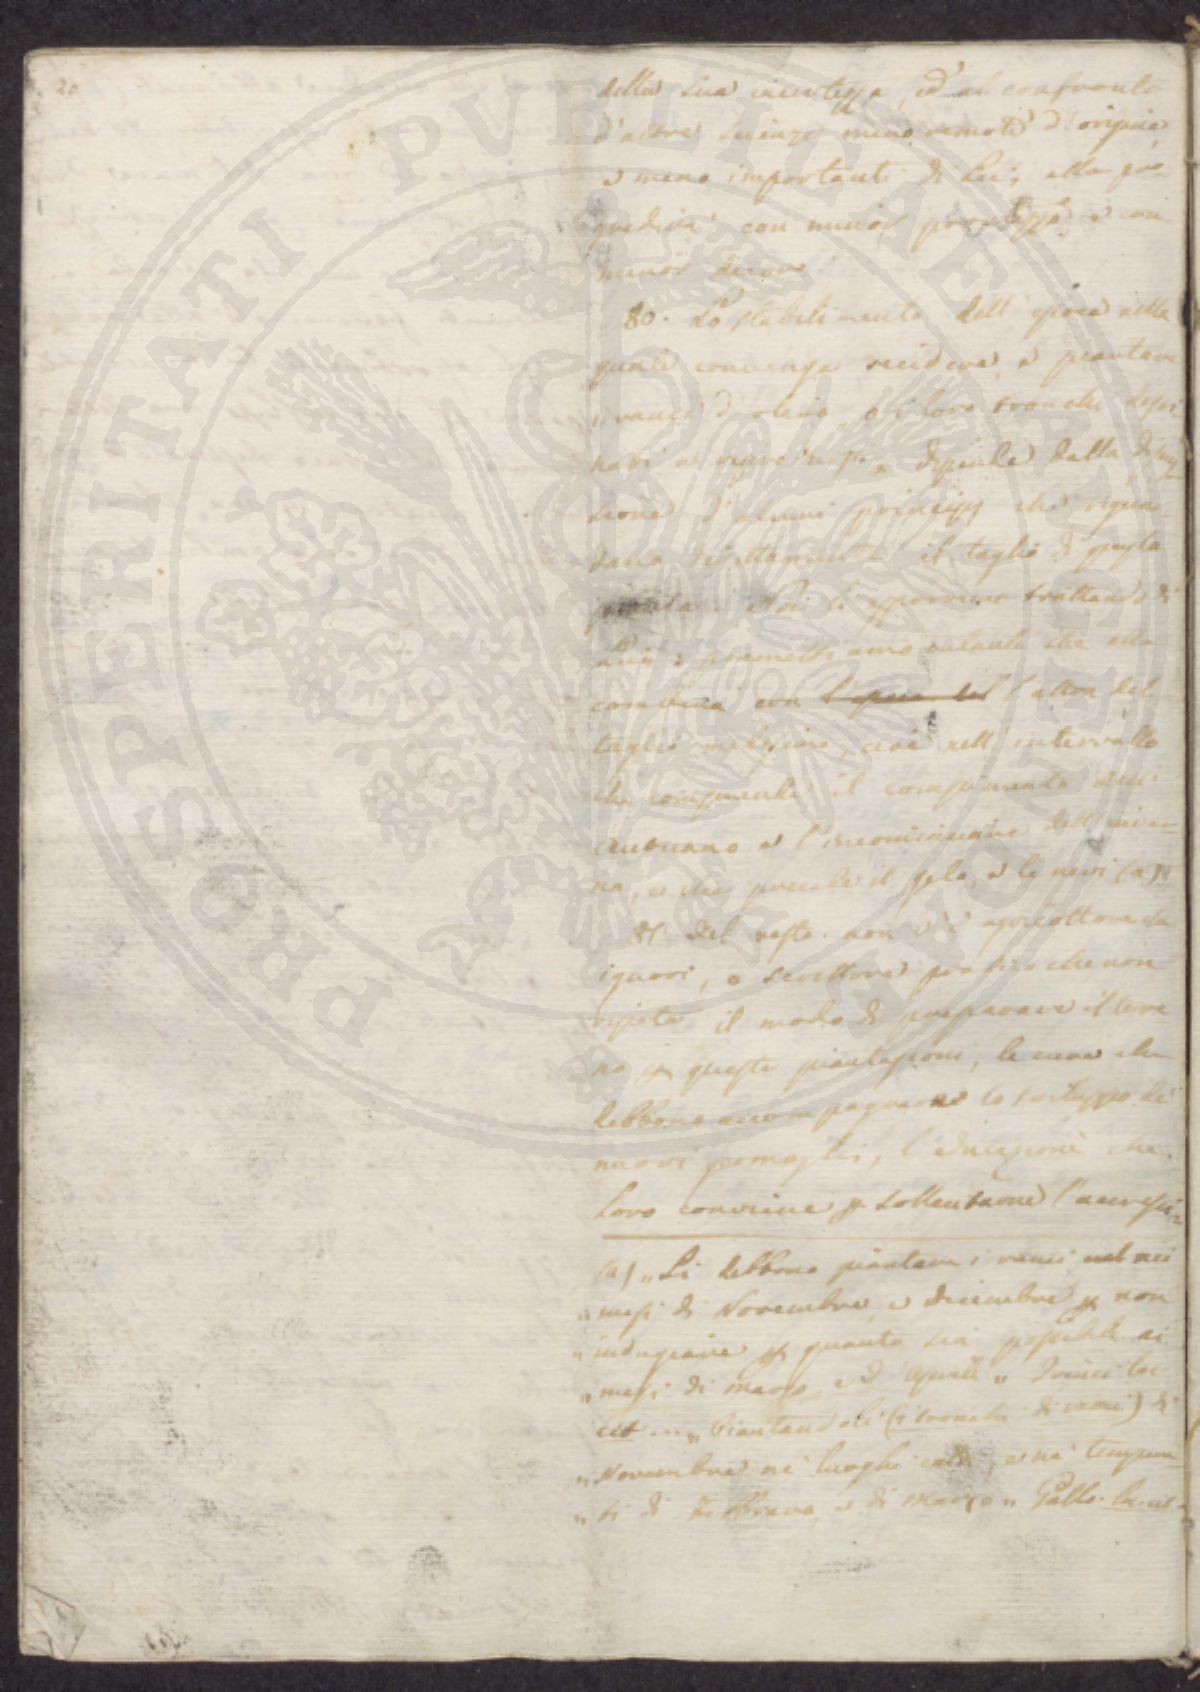 20
della sua incertezza, ed al confronto
d'altre scienze meno remote d'origine,
e meno importanti di lei, ella pro=
gredirà con minor prontezza, e con
minor decoro.
80. Lo stabilimento dell'epoca nella
quale convenga recidere, e piantare
i rami d'olivo, o i loro tronchi desti
nati a dipende dalla discus
sione d'alcuni principj che riguar
dano direttamente il taglio di questa
pianta. Noi l'esporremo trattando di
lui, e premettiamo soltanto che ella
combina con l'epoca del l'altra del
taglio medesimo, cioè nell'intervallo
che comprende il compimento dell'
autunno e l'incominciare dell'inver=
no, e che precede il gelo, e le nevi (a)
81. Del resto non v'è agricoltore che
ignori, o scrittore pratico che non
ripeta il modo di preparare il terre
no p queste piantagioni, le cure che
debbono accompagnare lo sviluppo dei
nuovi germogli, l'educazione che
loro conviene p sollecitarne l'accresci=
(a) „ Si debbono piantare i rami nei
„ mesi di Novembre, e decembre p non
„ indugiare p quanto sia possibile ai
„ mesi di marzo, ed aprile „ loc
cit ... „ Piantandoli (i tronchi di rami) di
„ Novembre ne' luoghi caldi, e ne' tempera
„ ti di Febbraro, e di marzo „ Gallo. loc. cit.
PROSPERITATI PUBLICAE AUGENDAE